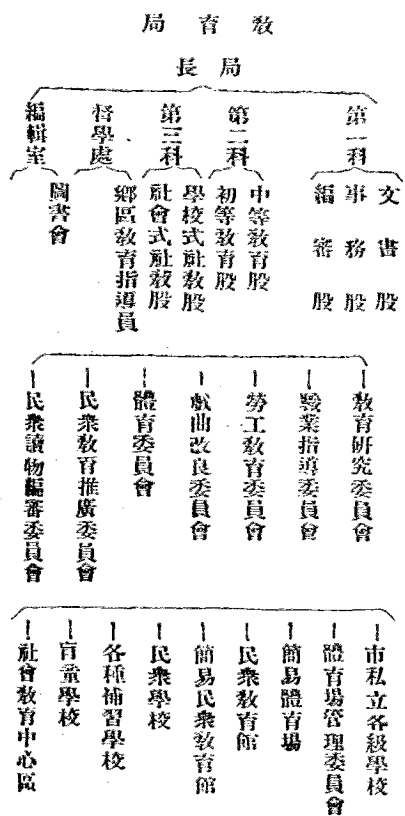 教育局
局長
第一科
第二科
第三科
督學處
編輯室
文書股
事務股
編審股
中等教育股
初等教育股
學校式社教股
社會式社教股
鄉區教育指導員
圖書會
教育研究委員會
職業指導委員會
勞工教育委員會
戲曲改良委員會
體育委員會
民衆教育推廣委員會
民衆讀物編審委員會
市私立各級學校
體育場管理委員會
簡易體育場
民衆教育館
簡易民衆教育館
民衆學校
各種補習學校
盲童學校
社會教育中心區